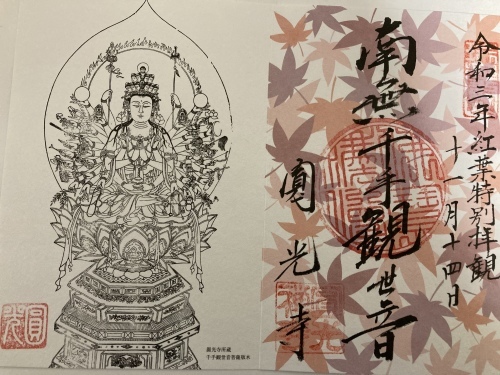 令和三年紅葉特別拝観
十一月十四日
南無千手観世音
圓光寺
圓光寺所蔵
千手観世音菩薩版木